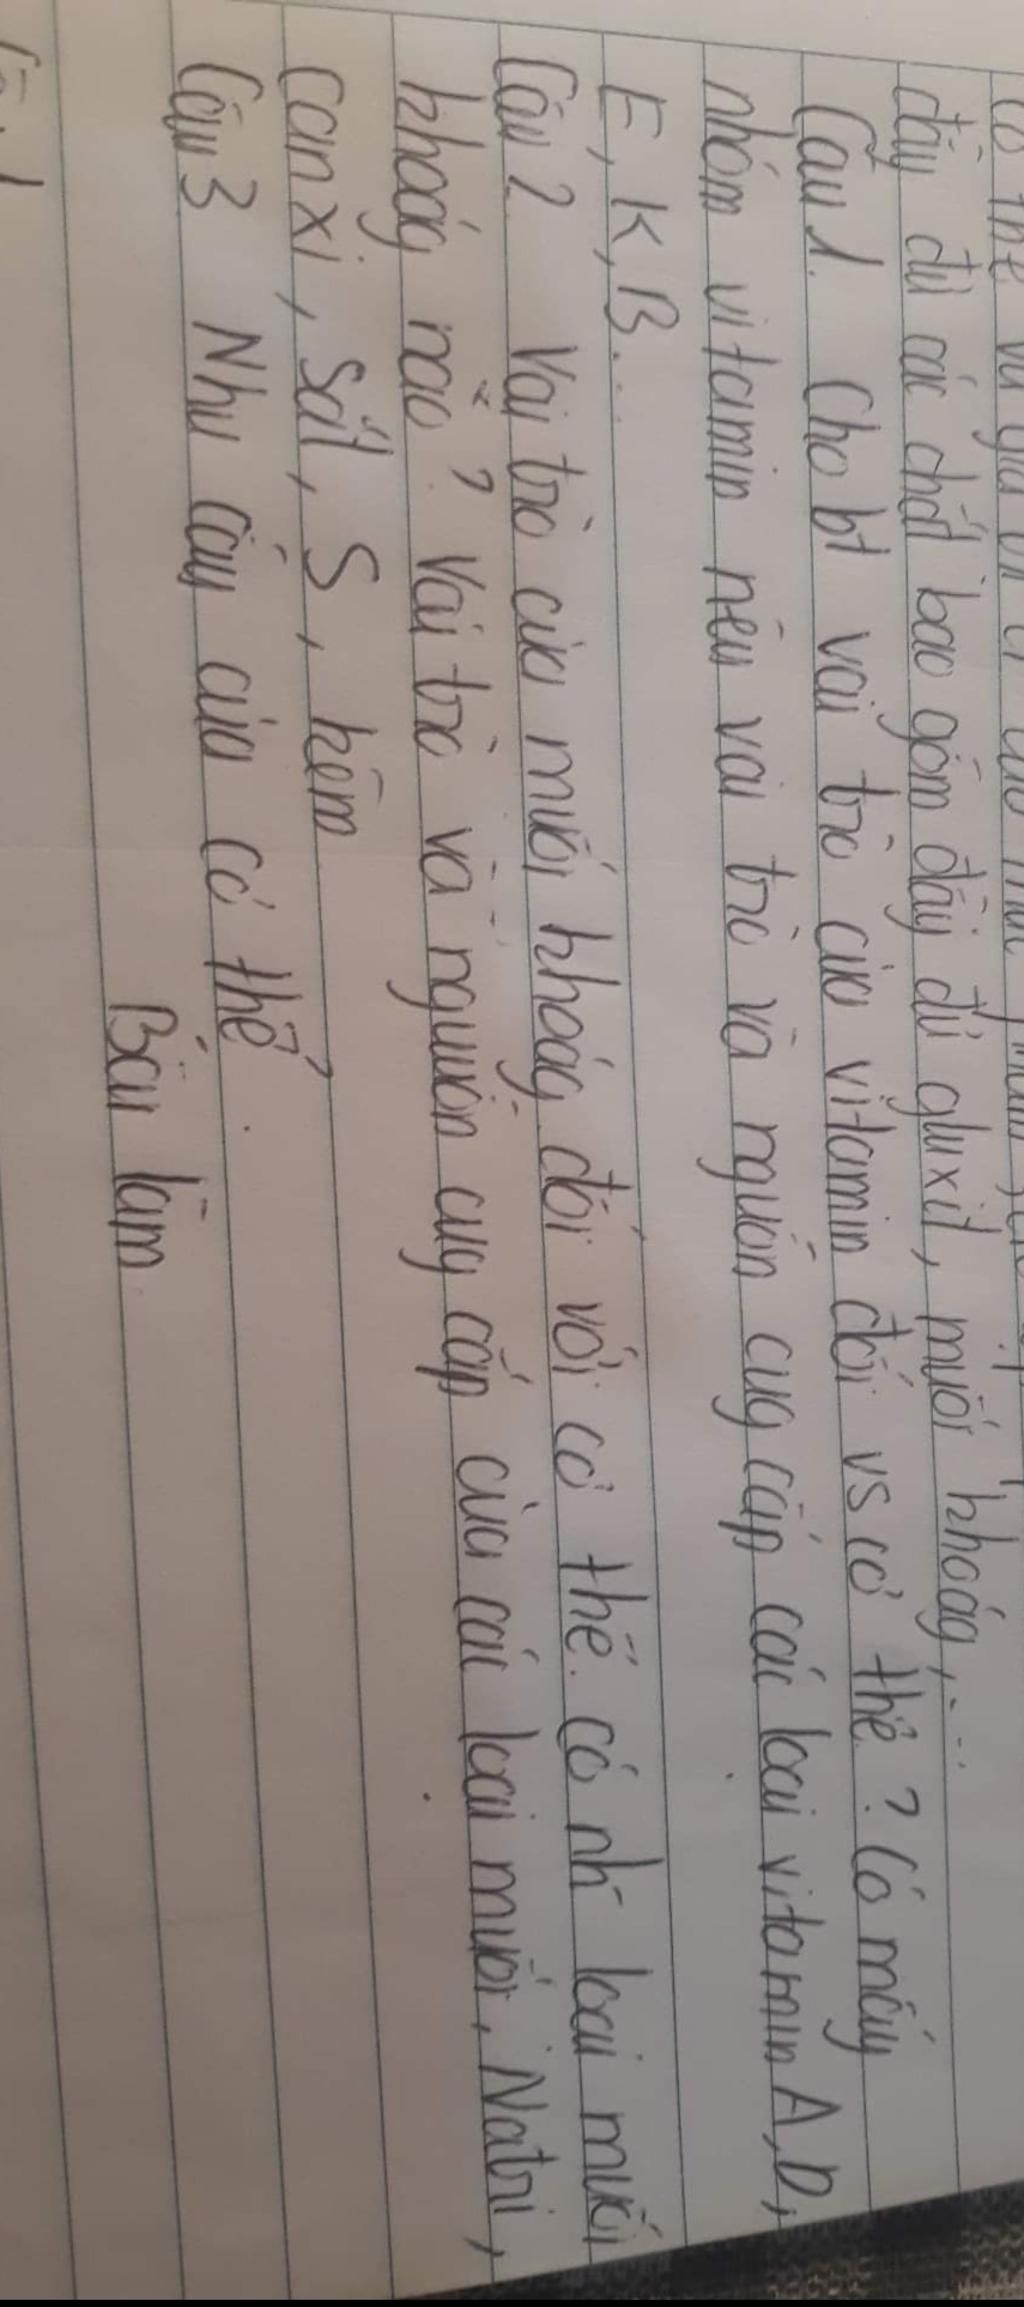 đầy đủ các chất bao gồm đầy đủ gluxit, muối khoág,...
Câu 1. Cho bt vai trò của vitamin đối vs cơ thể? Có mấy
nhóm vitamin nêu vai trò và nguồn cug cấp các loại vitamin A, D,
E, K, B...
Câu 2 Vai trò của muối khoág đối với cơ thể. có nh~ loại muối
khoág nào? Vai trò và nguồn cug cấp của các loại muối, Natri,
Canxi, Sắt, S, kẽm
Câu 3 Nhu cầu của cơ thể.
Bài làm